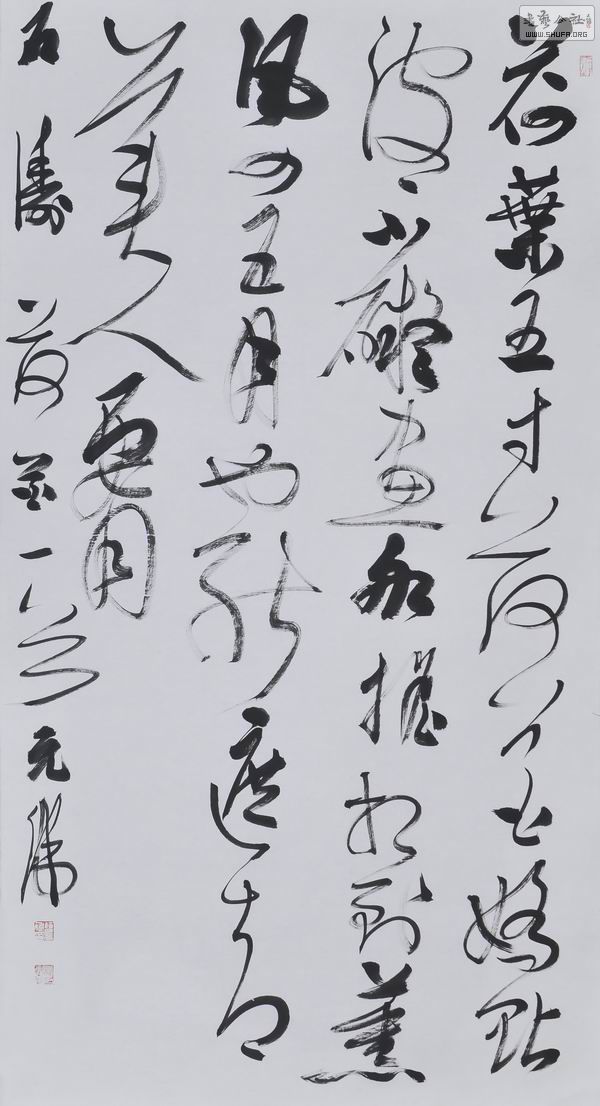 荷葉五寸荷花嬌貼
波不礙畫船搖相到薰
風四五月也能遮却
美人腰
石濤荷花一首 元
WWW.SHUFA.ORG